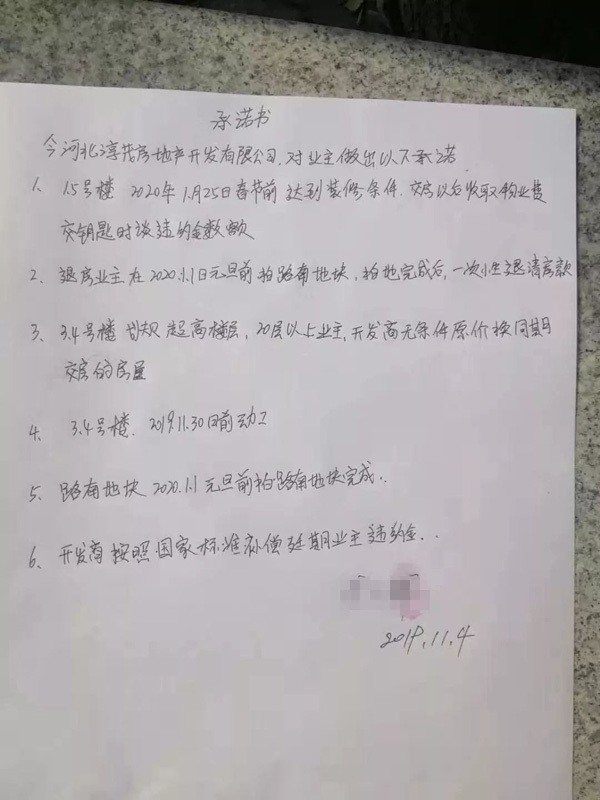 承诺书
今河北淳茂房地产开发有限公司,对业主做出以下承诺
1、15号楼 2020年1月25日春节前达到装修条件.交房以后收取物业费
交钥匙时谈违约金数额
2、退房业主在2020.1.1日元旦前拍路南地块,拍地完成后,一次性退清房款
3、3.4号楼 规划超高楼层,20层以上业主,开发商无条件原价换同期
交房的房屋
4、3.4号楼.2019.11.30日前动工
5、路南地块2020.1.1元旦前拍路南地块完成..
6、开发商按照国家标准补偿延期业主违约金..
2019.11.4